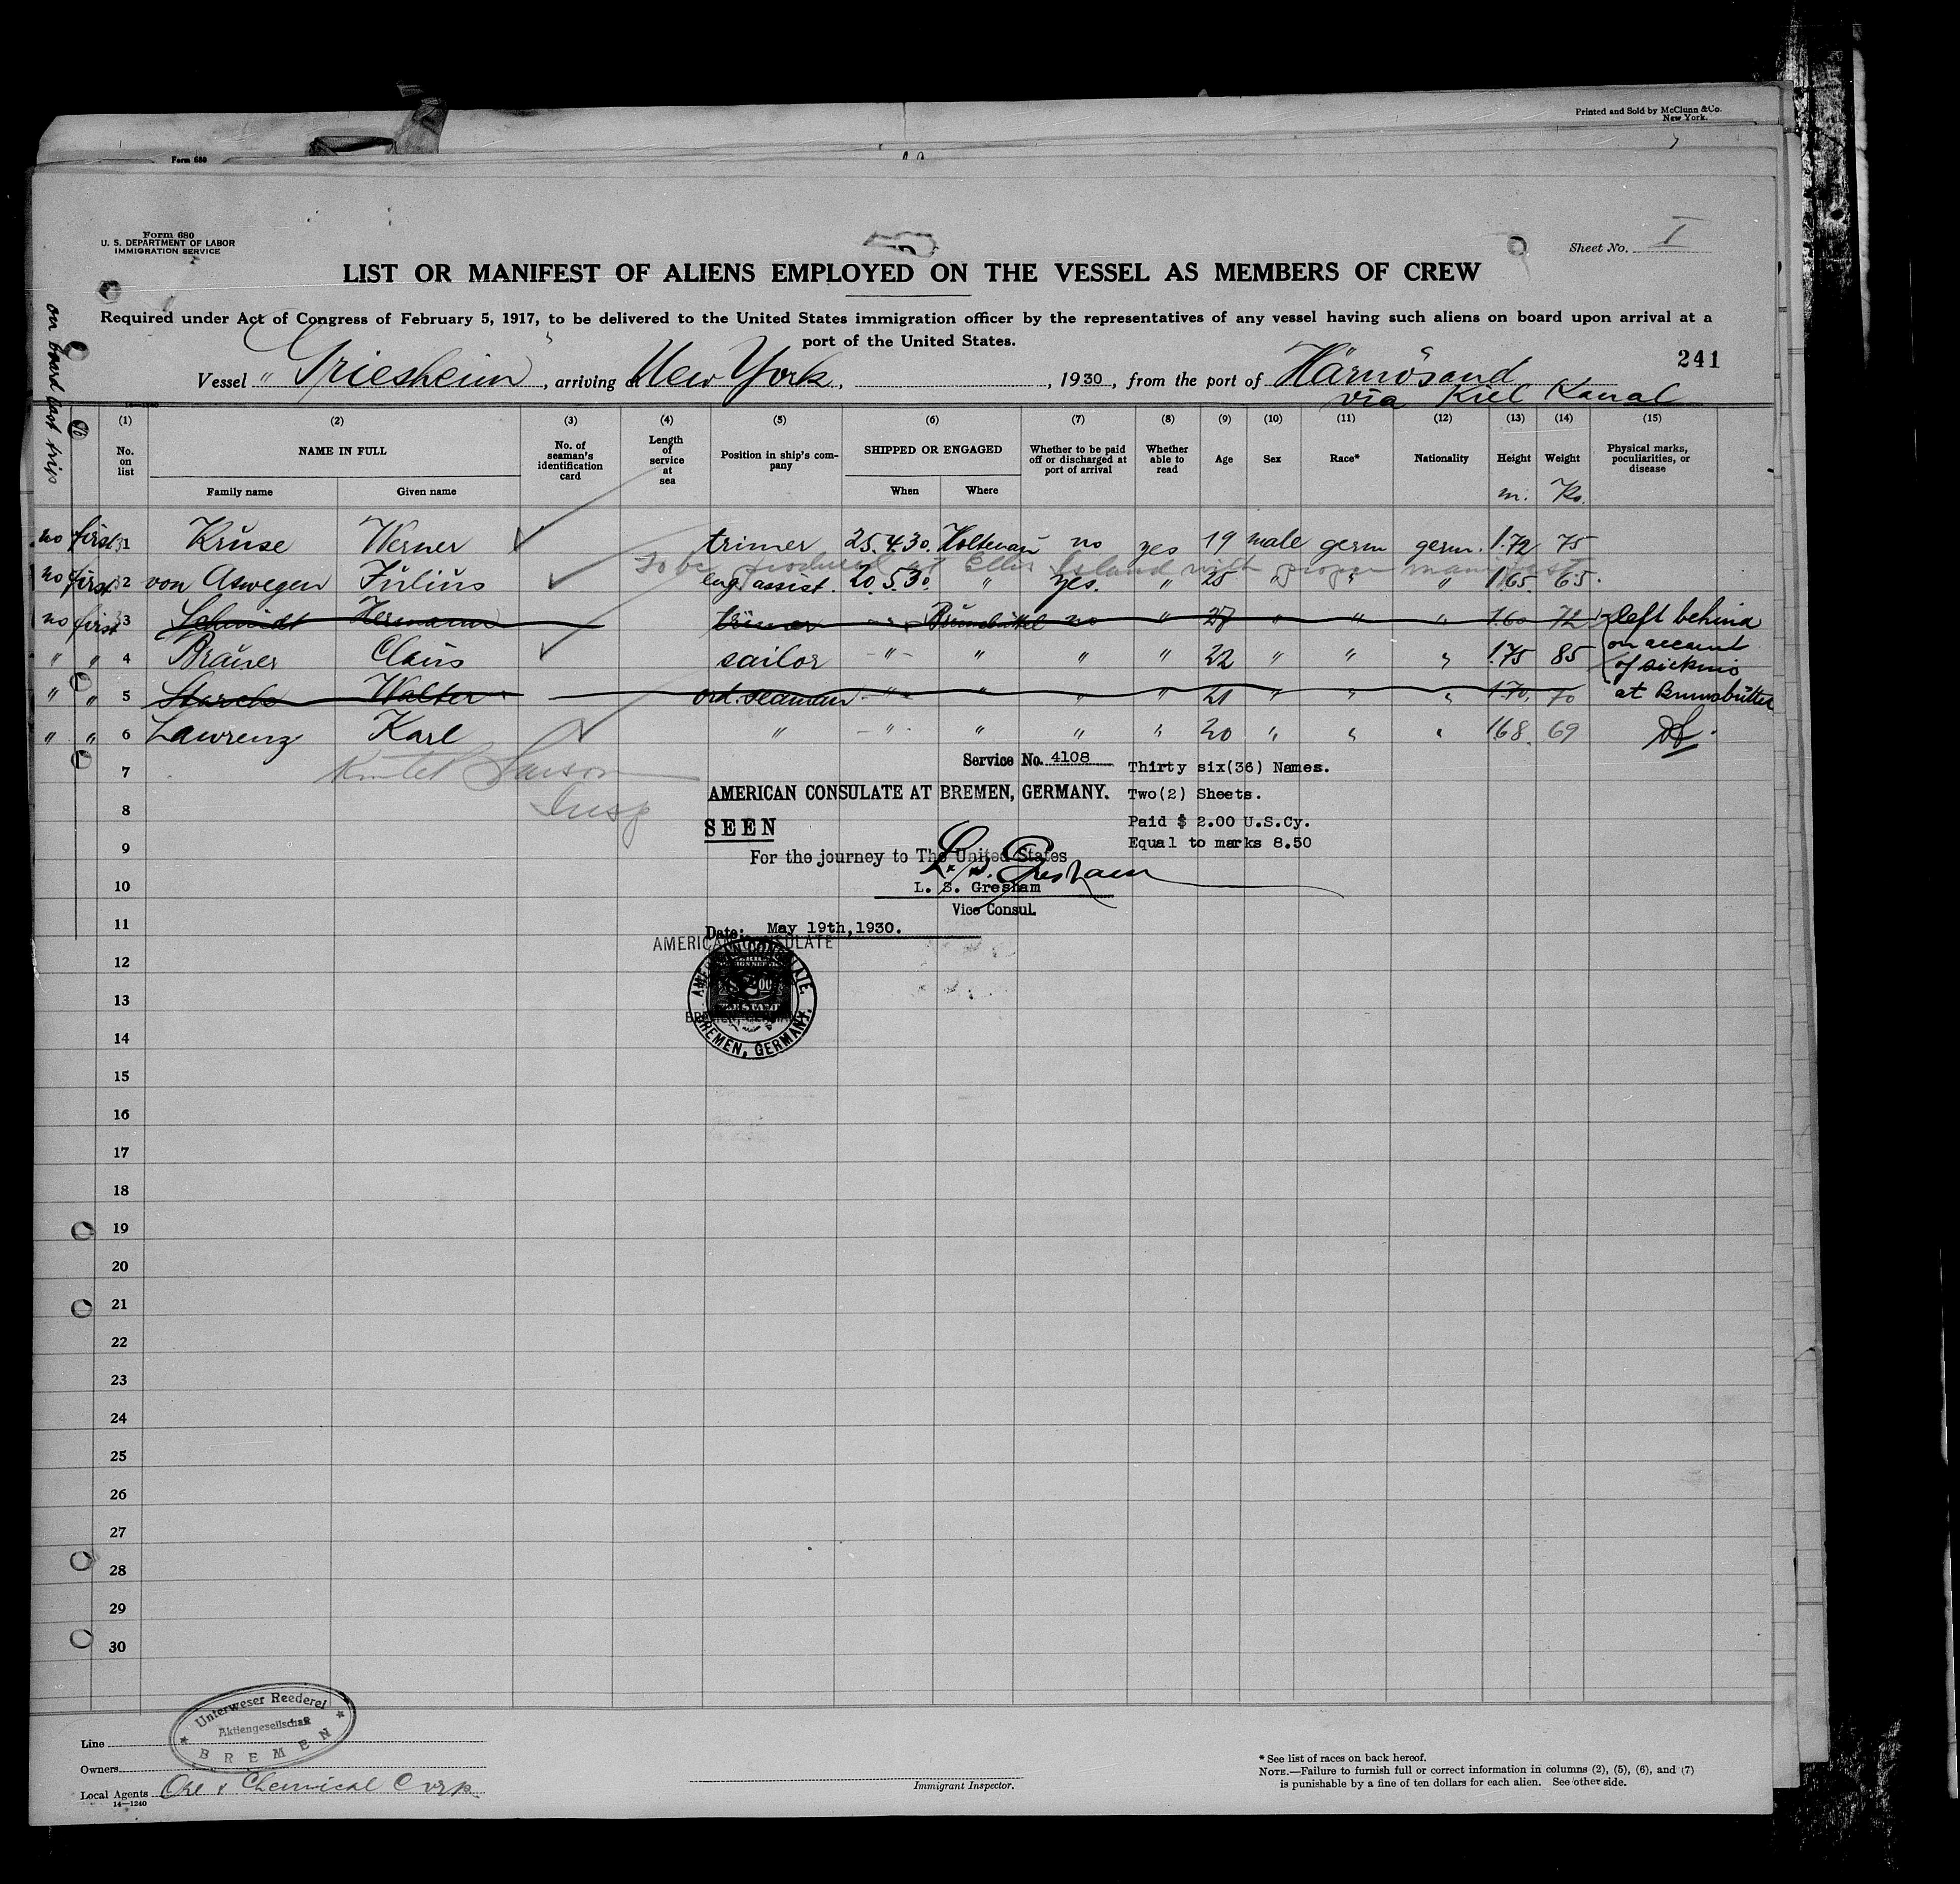 Printed and Sold by McClunn & Co.
New York.
Form 680
Form 680
U. S. DEPARTMENT OF LABOR
IMMIGRATION SERVICE
Sheet No. I
LIST OR MANIFEST OF ALIENS EMPLOYED ON THE VESSEL AS MEMBERS OF CREW
Required under Act of Congress of February 5, 1917, to be delivered to the United States immigration officer by the representatives of any vessel having such aliens on board upon arrival at a
port of the United States.
241
Vessel "Griesheim", arriving at New York, , 1930, from the port of Härnösand
via Kiel Kanal
on board last trip
(1) (2) (3) (4) (5) (6) (7) (8) (9) (10) (11) (12) (13) (14) (15)
No. on list NAME IN FULL No. of seaman's identification card Length of service at sea Position in ship's company SHIPPED OR ENGAGED Whether to be paid off or discharged at port of arrival Whether able to read Age Sex Race* Nationality Height Weight Physical marks, peculiarities, or disease
Family name Given name When Where m. Ko.
no first 31 Krŭse Werner trimer 25.4.30. Holtenau no yes 19 male germ germ. 1.72 75
To be produced at Ellis Island with proper manifest
no first 32 von Aswegen Jŭliŭs eng. assist. 20.5.30. " yes. " 25 " " " 1.65. 65.
no first 33 Schmidt Hermann trimer " Brŭnsbŭttel no " 27 " " " 1.60 72 left behind
" " 4 Braŭer Claŭs sailor " " " " 22 " " " 1.75 85 on account
of sickness
" " 5 Walter ord. seaman " " " " 21 " " " 1.70. 70 at Brunsbüttel
" " 6 Lawrenz Karl " " " " " 20 " " " 168. 69
7
Larson
Insp
Service No. 4108
Thirty six(36) Names.
AMERICAN CONSULATE AT BREMEN, GERMANY.
Two(2) Sheets.
8
SEEN
Paid $ 2.00 U.S.Cy.
Equal to marks 8.50
9
For the journey to The United States
L. S. Gresham
10
L. S. Gresham
Vice Consul.
11
Date: May 19th,1930.
AMERICAN CONSULATE
12
AMERICAN CONSULATE
13
BREMEN, GERMANY
14
BREMEN, GERMANY.
15
16
17
18
19
20
21
22
23
24
25
26
27
28
29
30
Unterweser Reederei
Aktiengesellschaft
BREMEN
Line
Owners
Local Agents Ore & Chemical Corp.
14—1240
Immigrant Inspector.
* See list of races on back hereof.
NOTE.—Failure to furnish full or correct information in columns (2), (5), (6), and (7)
is punishable by a fine of ten dollars for each alien. See other side.